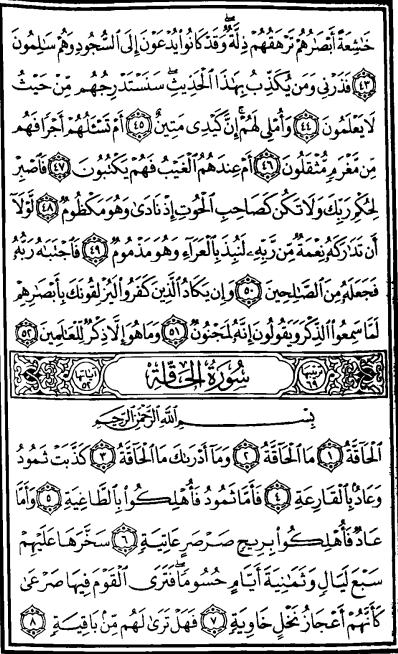 خَٰشِعَةً أَبْصَٰرُهُمْ تَرْهَقُهُمْ ذِلَّةٌۖ وَقَدْ كَانُوا۟ يُدْعَوْنَ إِلَى ٱلسُّجُودِ وَهُمْ سَٰلِمُونَ
٤٣ فَذَرْنِى وَمَن يُكَذِّبُ بِهَٰذَا ٱلْحَدِيثِۖ سَنَسْتَدْرِجُهُم مِّنْ حَيْثُ
لَا يَعْلَمُونَ ٤٤ وَأُمْلِى لَهُمْۚ إِنَّ كَيْدِى مَتِينٌ ٤٥ أَمْ تَسْـَٔلُهُمْ أَجْرًا فَهُم
مِّن مَّغْرَمٍ مُّثْقَلُونَ ٤٦ أَمْ عِندَهُمُ ٱلْغَيْبُ فَهُمْ يَكْتُبُونَ ٤٧ فَٱصْبِرْ
لِحُكْمِ رَبِّكَ وَلَا تَكُن كَصَاحِبِ ٱلْحُوتِ إِذْ نَادَىٰ وَهُوَ مَكْظُومٌ ٤٨ لَّوْلَآ
أَن تَدَٰرَكَهُۥ نِعْمَةٌ مِّن رَّبِّهِۦ لَنُبِذَ بِٱلْعَرَآءِ وَهُوَ مَذْمُومٌ ٤٩ فَٱجْتَبَٰهُ رَبُّهُۥ
فَجَعَلَهُۥ مِنَ ٱلصَّٰلِحِينَ ٥٠ وَإِن يَكَادُ ٱلَّذِينَ كَفَرُوا۟ لَيُزْلِقُونَكَ بِأَبْصَٰرِهِمْ
لَمَّا سَمِعُوا۟ ٱلذِّكْرَ وَيَقُولُونَ إِنَّهُۥ لَمَجْنُونٌ ٥١ وَمَا هُوَ إِلَّا ذِكْرٌ لِّلْعَٰلَمِينَ ٥٢
ترتيبها ٦٩ سُورَةُ الحَاقَّةِ آياتها ٥٢
بِسْمِ ٱللَّهِ ٱلرَّحْمَٰنِ ٱلرَّحِيمِ
ٱلْحَآقَّةُ ١ مَا ٱلْحَآقَّةُ ٢ وَمَآ أَدْرَىٰكَ مَا ٱلْحَآقَّةُ ٣ كَذَّبَتْ ثَمُودُ
وَعَادٌۢ بِٱلْقَارِعَةِ ٤ فَأَمَّا ثَمُودُ فَأُهْلِكُوا۟ بِٱلطَّاغِيَةِ ٥ وَأَمَّا
عَادٌ فَأُهْلِكُوا۟ بِرِيحٍ صَرْصَرٍ عَاتِيَةٍ ٦ سَخَّرَهَا عَلَيْهِمْ
سَبْعَ لَيَالٍ وَثَمَٰنِيَةَ أَيَّامٍ حُسُومًاۖ فَتَرَى ٱلْقَوْمَ فِيهَا صَرْعَىٰ
كَأَنَّهُمْ أَعْجَازُ نَخْلٍ خَاوِيَةٍ ٧ فَهَلْ تَرَىٰ لَهُم مِّنۢ بَاقِيَةٍ ٨